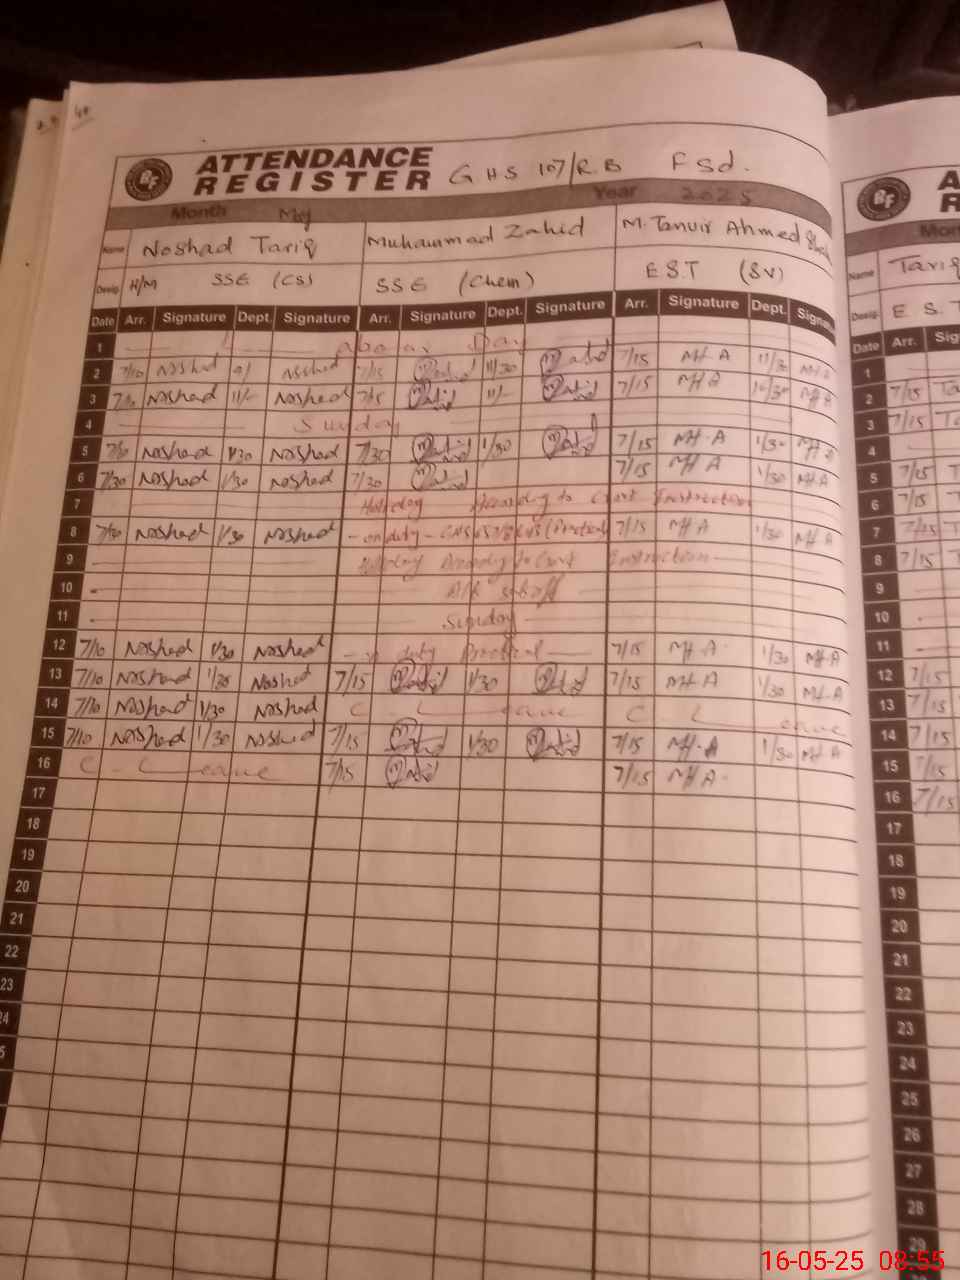 ATTENDANCE REGISTER GHS 107/R.B FSd.
Month May Year 2025
Name Noshad Tariq Muhammad Zahid M. Tanvir Ahmed
Desig. H/M SSE (CS) SSE (Chem) E.S.T (SV)
Date Arr. Signature Dept. Signature Arr. Signature Dept. Signature Arr. Signature Dept.
1 Day
2 7/10 Noshad Noshad 7/15 Zahid 11/30 Zahid 7/15 MH-A 11/30 MH-A
3 7/10 Noshad 11/- Noshad 7/15 Zahid 11/- Zahid 7/15 MH-A MH-A
4 Sunday
5 7/30 Noshad 1/30 Noshad 7/30 Zahid 1/30 Zahid 7/15 MH-A 1/30 MH-A
6 7/30 Noshad 1/30 Noshad 7/30 Zahid 7/15 MH-A 1/30 MH-A
7 Holiday According to Instruction
8 7/30 Noshad 1/30 Noshad - on duty - 7/15 MH-A 1/30 MH-A
9 Holiday According to Instruction
10
11 Sunday
12 7/10 Noshad 1/30 Noshad duty Practical 7/15 MH-A 1/30 MH-A
13 7/10 Noshad 1/30 Noshad 7/15 Zahid 1/30 Zahid 7/15 MH-A 1/30 MH-A
14 7/10 Noshad 1/30 Noshad C - Leave C - Leave
15 7/10 Noshad 1/30 Noshad 7/15 Zahid 1/30 Zahid 7/15 MH-A 1/30 MH-A
16 C - Leave 7/15 Zahid 7/15 MH-A
17
18
19
20
21
22
23
BF
Name
Desig. E.S.T
Date Arr.
1
2 7/15
3 7/15
4
5 7/15
6 7/15
7 7/15
8 7/15
9
10
11
12 7/15
13 7/15
14 7/15
15 7/15
16 7/15
17
18
19
20
21
22
23
24
25
26
27
28
29
16-05-25 08:55